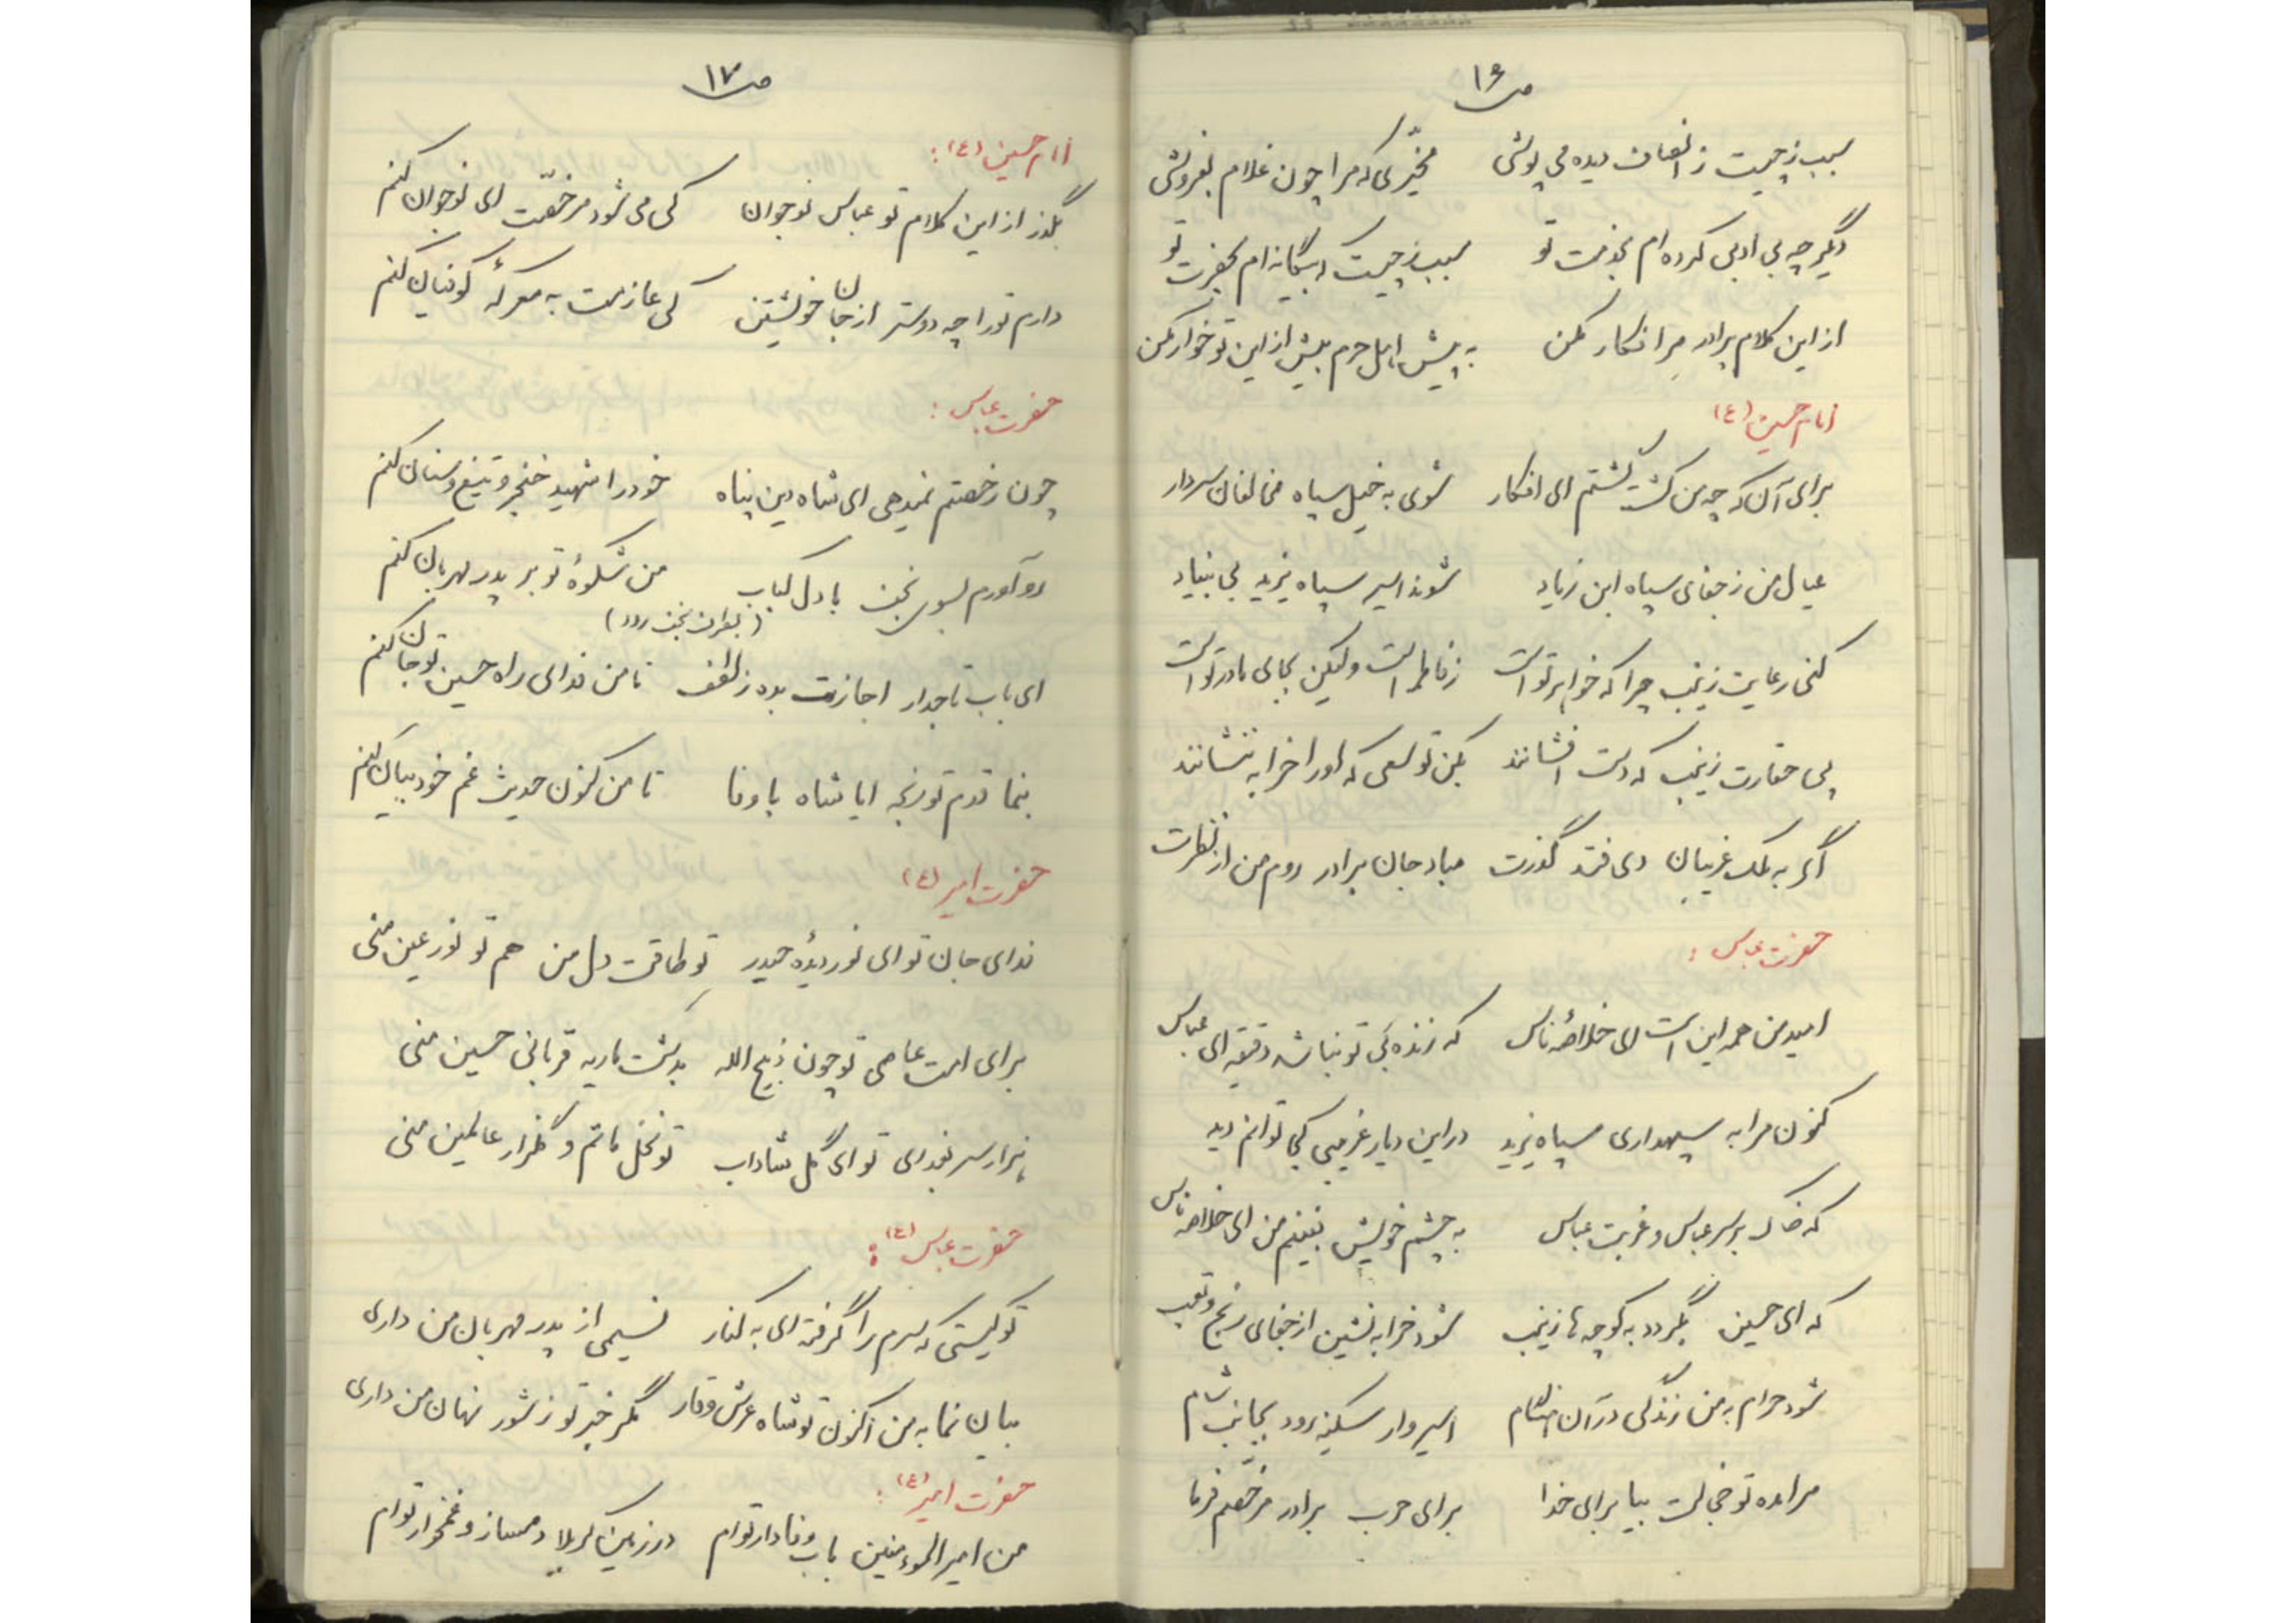 ص ۱۶
سبب ز چیست ز انصاف دیده می پوشی مخیّری که مرا چون غلام بفروشی
دیگر چه بی ادبی کرده ام بخدمت تو سبب ز چیست که بیگانه ام بحضرت تو
از این کلام برادر مرا فکار مکن به پیش اهل حرم بیش از این تو خوار مکن
امام حسین (ع)
برای آن که چه من کشته گشتم ای افکار شوی به خیل سپاه مخالفان سردار
عیال من ز جفای سپاه ابن زیاد شوند اسیر سپاه یزید بی بنیاد
کنی رعایت زینب چرا که خواهر تو است ز فاطمه است ولیکن بجای مادر تو است
پی حقارت زینب که دست افشانند بکن تو سعی که او را خرابه ننشانند
اگر به ملک غریبان دمی فتد گذرت مباد جان برادر روم من از نظرت
حضرت عباس :
امید من همه این است ای خلاصهٔ ناس که زنده بی تو نباشد دقیقه ای عباس
کنون مرا به سپهداری سپاه یزید در این دیار غریبی کجا توانم دید
که خاک بر سر عباس و غربت عباس به چشم خویش نبینم من ای خلاصه ناس
که ای حسین بگردد به کوچه ها زینب شود خرابه نشین از جفای رنج و تعب
شود حرام به من زندگی در آن هنگام اسیروار سکینه رود بجانب شام
مرا مده تو خجالت بیا برای خدا برای حرب برادر مرخّصم فرما
ص ۱۷
امام حسین (ع) :
بگذر از این کلام تو عباس نوجوان کی می شود مرخّصت ای نوجوان کنم
دارم تو را چه دوستر از جان خویشتن کی عازمت به معرکهٔ کوفیان کنم
حضرت عباس :
چون رخصتم نمیدهی ای شاه دین پناه خود را شهید خنجر و تیغ و سنان کنم
رو آورم بسوی نجف با دل کباب من شکوهٔ تو بر پدر مهربان کنم
(بطرف نجف رود)
ای باب تاجدار اجازت بده ز لطف تا من فدای راه حسین تو جان کنم
بنما قدم تو رنجه ایا شاه با وفا تا من کنون حدیث غم خود بیان کنم
حضرت امیر (ع)
فدای جان تو ای نور دیدهٔ حیدر تو طاقت دل من هم تو نور عین منی
برای امت عاصی تو چون ذبیح الله بدشت ماریه قربانی حسین منی
هزار سر بفدای تو ای گل شاداب تو نخل ماتم و گلزار عالمین منی
حضرت عباس (ع) :
تو کیستی که سرم را گرفته ای به کنار نسیمی از پدر مهربان من داری
بیان نما به من اکنون تو شاه عرش وقار مگر خبر تو ز شور نهان من داری
حضرت امیر (ع) :
من امیر المؤمنین باب وفادار توام در زمین کربلا دمساز و غمخوار توام